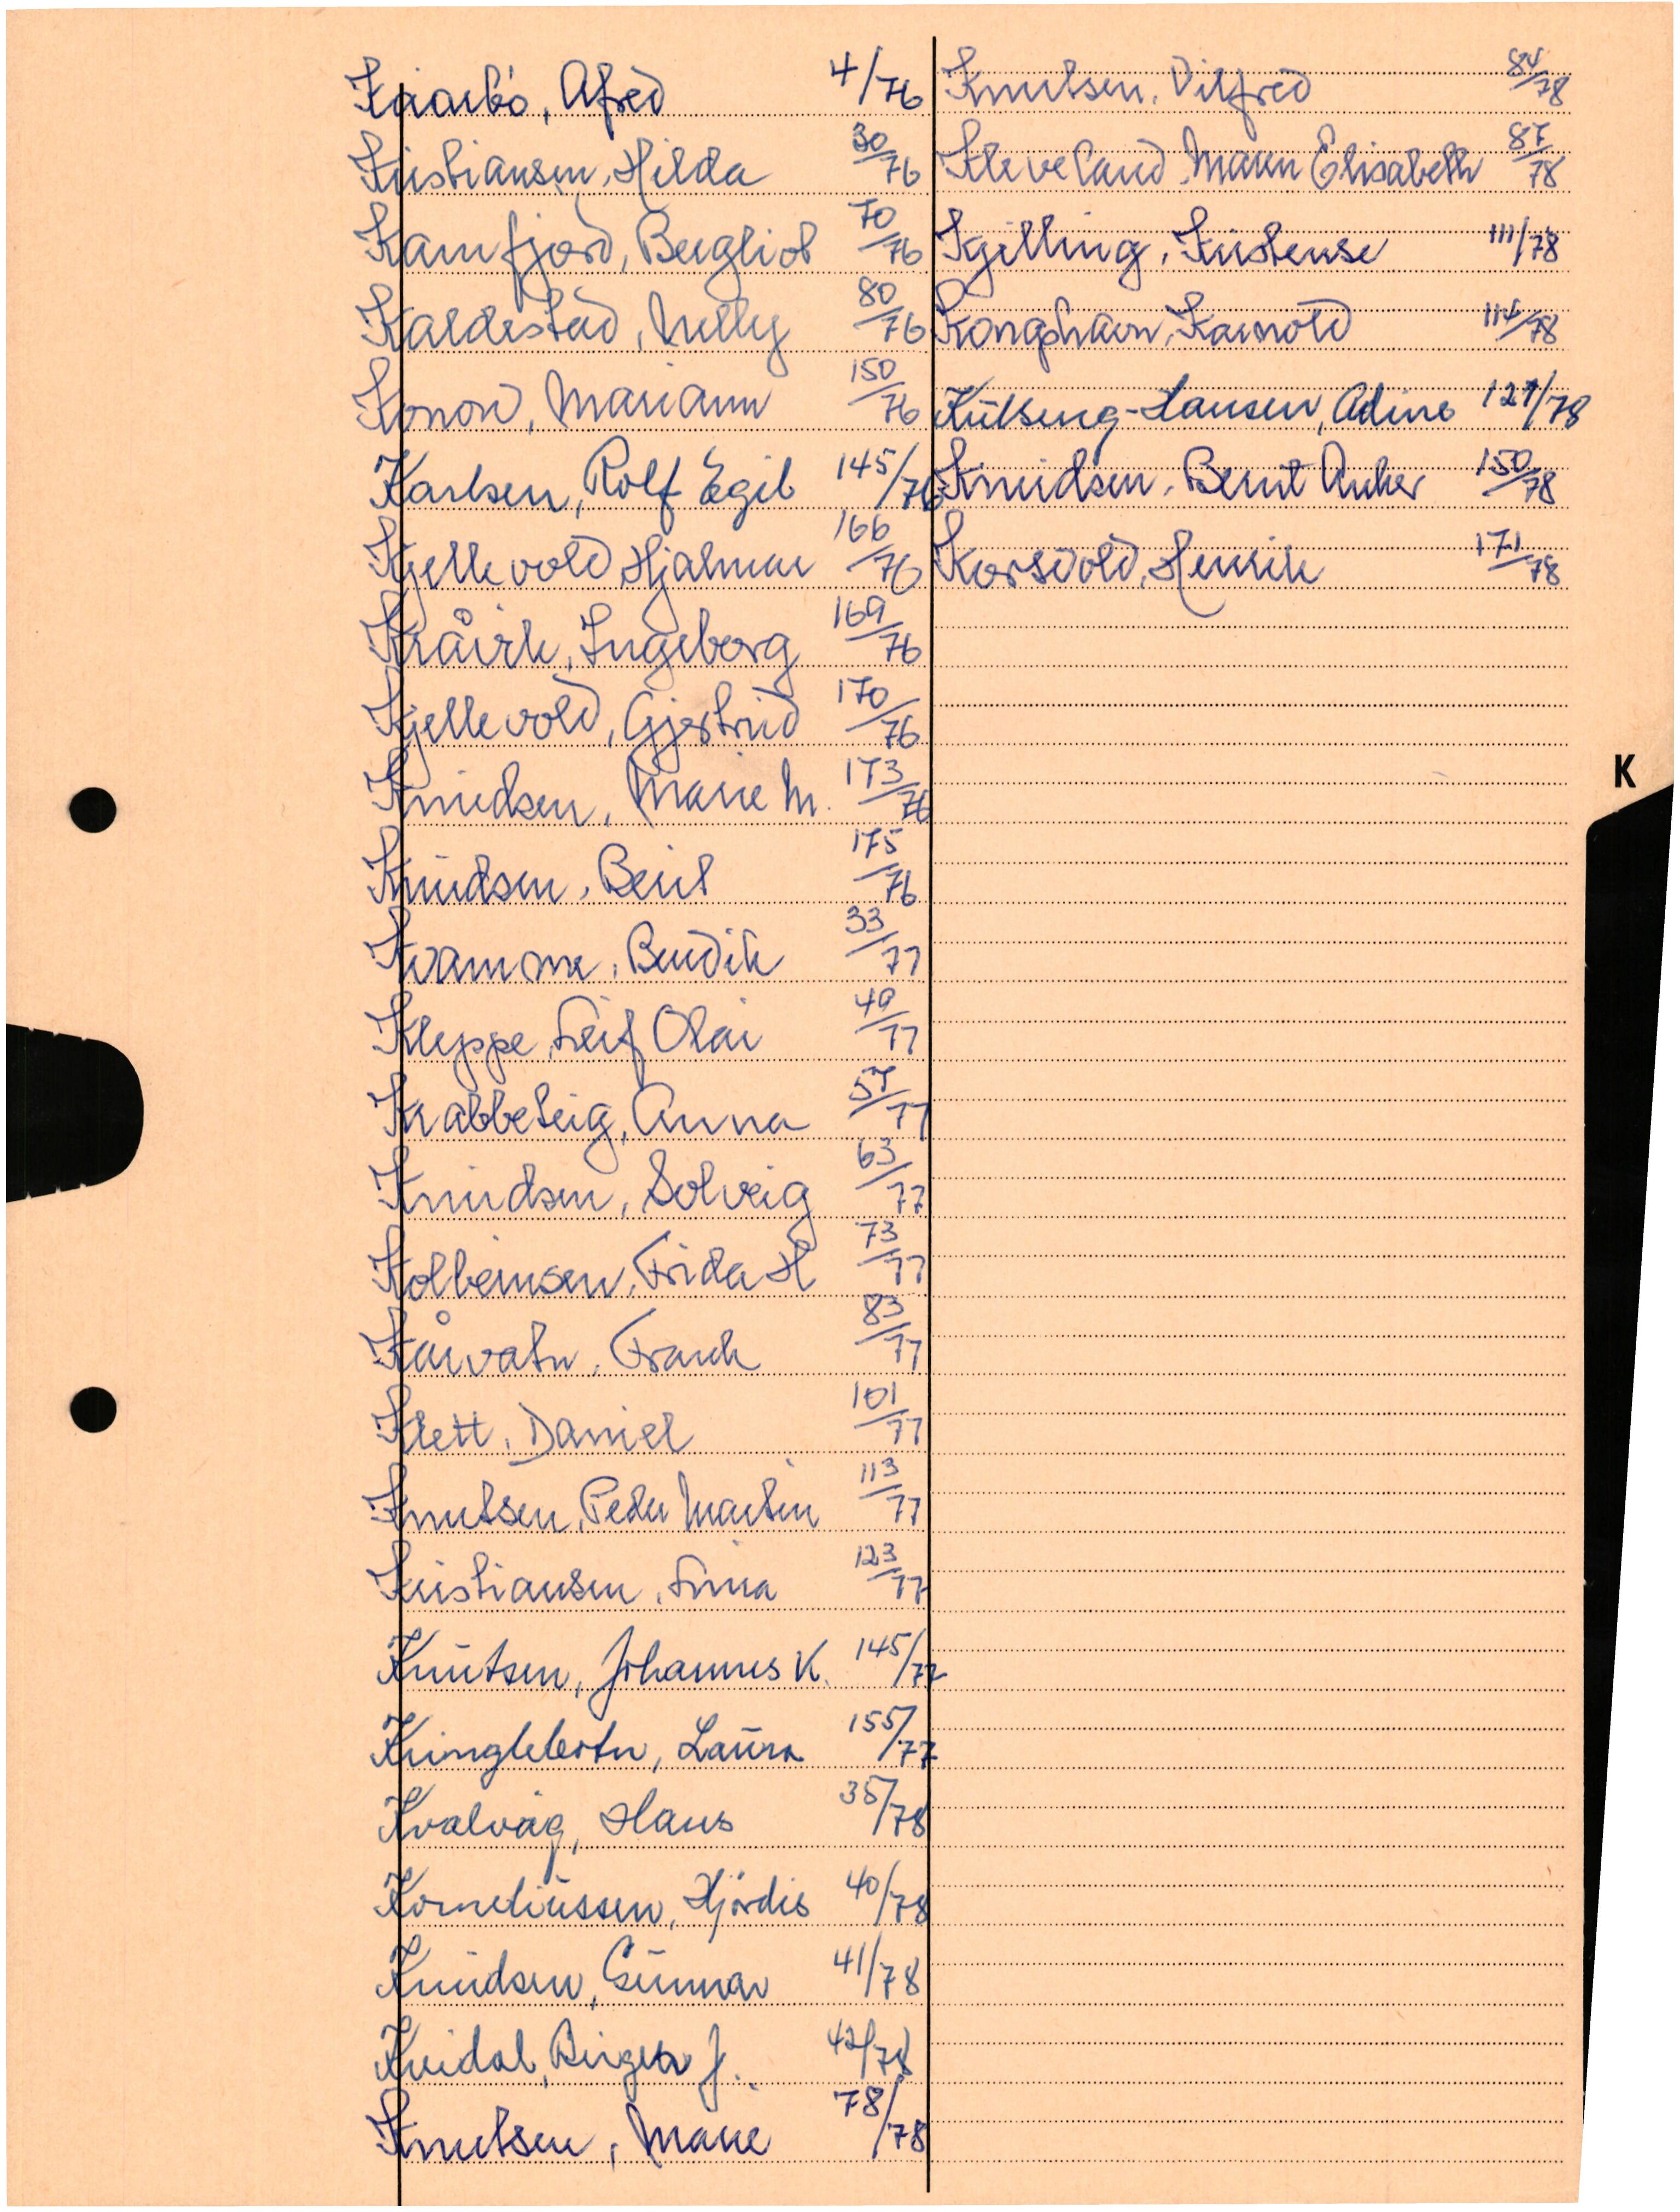 Kaarbö, Afred 4/76
Kristiansen, Hilda 30/76
Kamfjord, Bergliot 70/76
Kaldestad, Nelly 80/76
Konow, Mariann 150/76
Karlsen, Rolf Egil 145/76
Kjellevold, Hjalmar 166/76
Kråvik, Ingeborg 169/76
Kjellevold, Gjertrud 170/76
Knudsen, Marie M. 173/76
Knudsen, Berit 175/76
Kvamme, Bendik 33/77
Kleppe, Leif Olai 49/77
Krabbeteig, Anna 57/77
Knudsen, Solveig 63/77
Kolbeinsen, Frida H 73/77
Kårvatn, Frank 83/77
Klett, Daniel 101/77
Knutsen, Peder Martin 113/77
Kristiansen, Lina 123/77
Knutsen, Johannes K. 145/77
Kringlebotn, Laura 155/77
Kvalvåg, Hans 35/78
Korneliussen, Hjördis 40/78
Knudsen, Gunnar 41/78
Kvidal, Birger J. 42/78
Knutsen, Marie 78/78
Knutsen, Vilfred 84/78
Kleveland, Maren Elisabeth 87/78
Kjilling, Kristense 111/78
Kongshavn, Karnold 114/78
Hansen, 78
Knudsen, Bernt Anker 150/78
Korsvold, Henrik 171/78
K